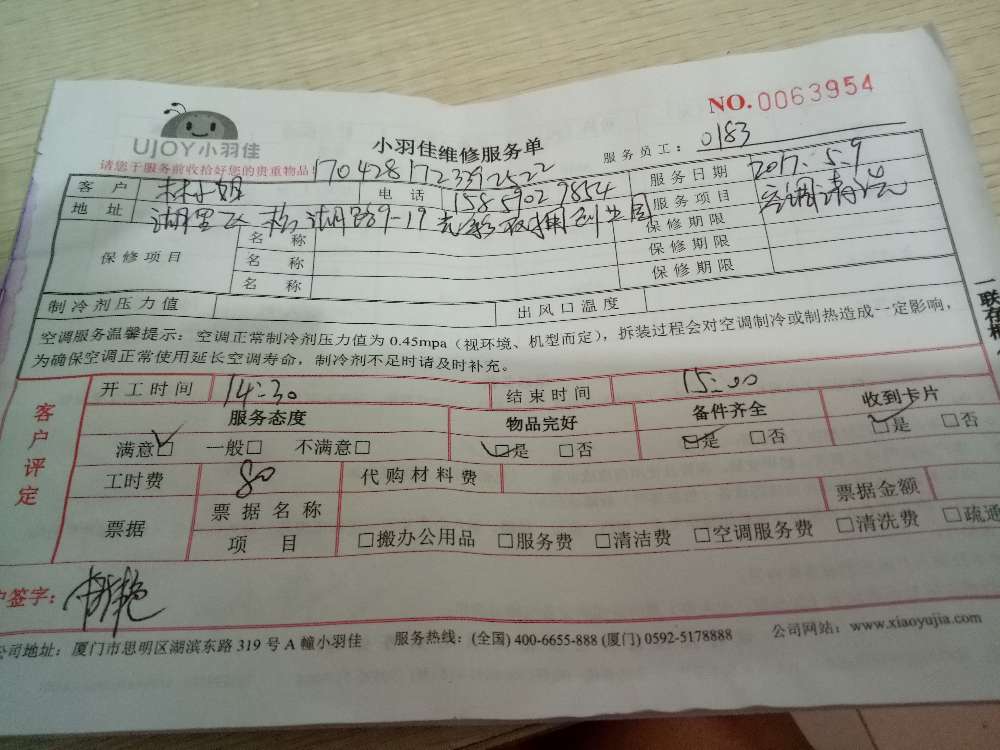 NO.0063954
UJOY小羽佳
小羽佳维修服务单
服务员工：0183
请您于服务前收拾好您的贵重物品！
170428172339252522
客户 林小姐 电话 15859029854 服务日期 2017.5.9
地址 湖里区 服务项目 空调清洗
保修项目 名称 保修期限
名称 保修期限
名称 保修期限
制冷剂压力值 出风口温度
空调服务温馨提示：空调正常制冷剂压力值为 0.45mpa（视环境、机型而定），拆装过程会对空调制冷或制热造成一定影响，
为确保空调正常使用延长空调寿命，制冷剂不足时请及时补充。
客户评定
开工时间 14:30 结束时间 15:00
服务态度 物品完好 备件齐全 收到卡片
满意☑ 一般□ 不满意□ ☑是 □否 ☑是 □否 ☑是 □否
工时费 80 代购材料费
票据 票据名称 票据金额
项目 □搬办公用品 □服务费 □清洁费 □空调服务费 □清洗费 □疏通
户签字：
公司地址：厦门市思明区湖滨东路 319 号 A 幢小羽佳 服务热线：(全国) 400-6655-888 (厦门) 0592-5178888 公司网站：www.xiaoyujia.com